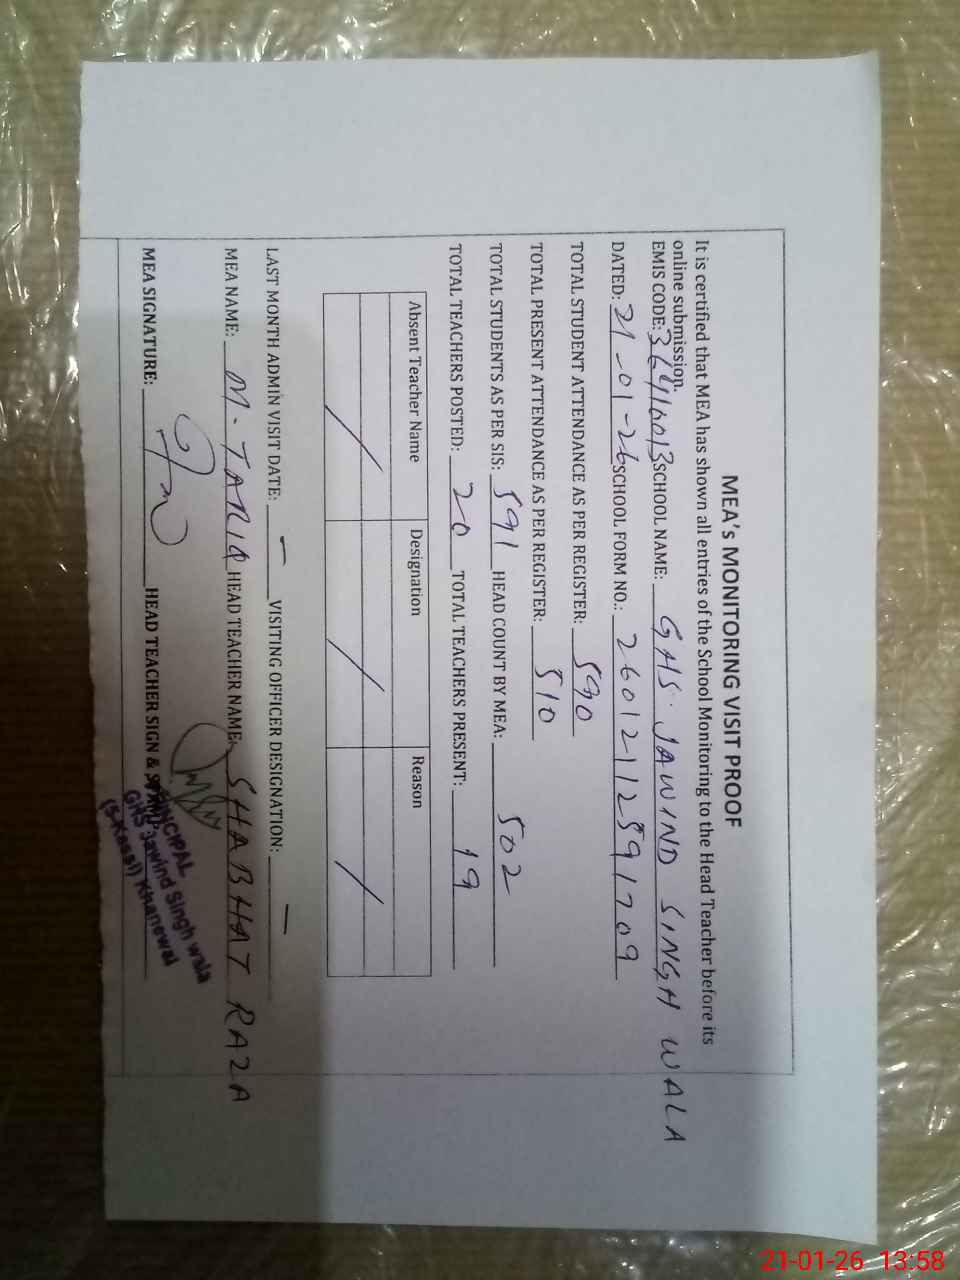 MEA's MONITORING VISIT PROOF
It is certified that MEA has shown all entries of the School Monitoring to the Head Teacher before its
online submission.
EMIS CODE: 36416013 SCHOOL NAME: GHS. JAWIND SINGH WALA
DATED: 21-01-26 SCHOOL FORM NO.: 26012112591709
TOTAL STUDENT ATTENDANCE AS PER REGISTER: 590
TOTAL PRESENT ATTENDANCE AS PER REGISTER: 510
TOTAL STUDENTS AS PER SIS: 591 HEAD COUNT BY MEA: 502
TOTAL TEACHERS POSTED: 20 TOTAL TEACHERS PRESENT: 19
Absent Teacher Name Designation Reason
/ / /
LAST MONTH ADMIN VISIT DATE: - VISITING OFFICER DESIGNATION: -
MEA NAME: M. TARIQ HEAD TEACHER NAME: SHABHAT RAZA
MEA SIGNATURE: HEAD TEACHER SIGN &
PRINCIPAL
GHS Jawind Singh wala
(5-Kassi) Khanewal
21-01-26 13:58